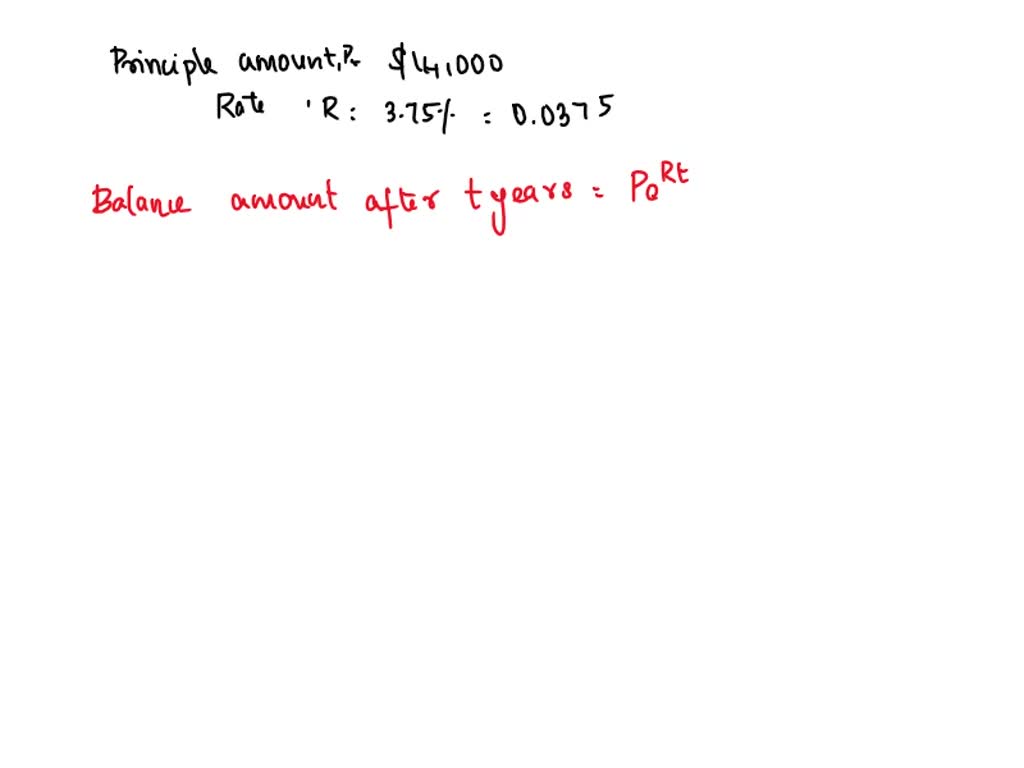 Principle amount, P= $14,000
Rate , R: 3.75% = 0.0375
Balance amount after t years = Pe^Rt